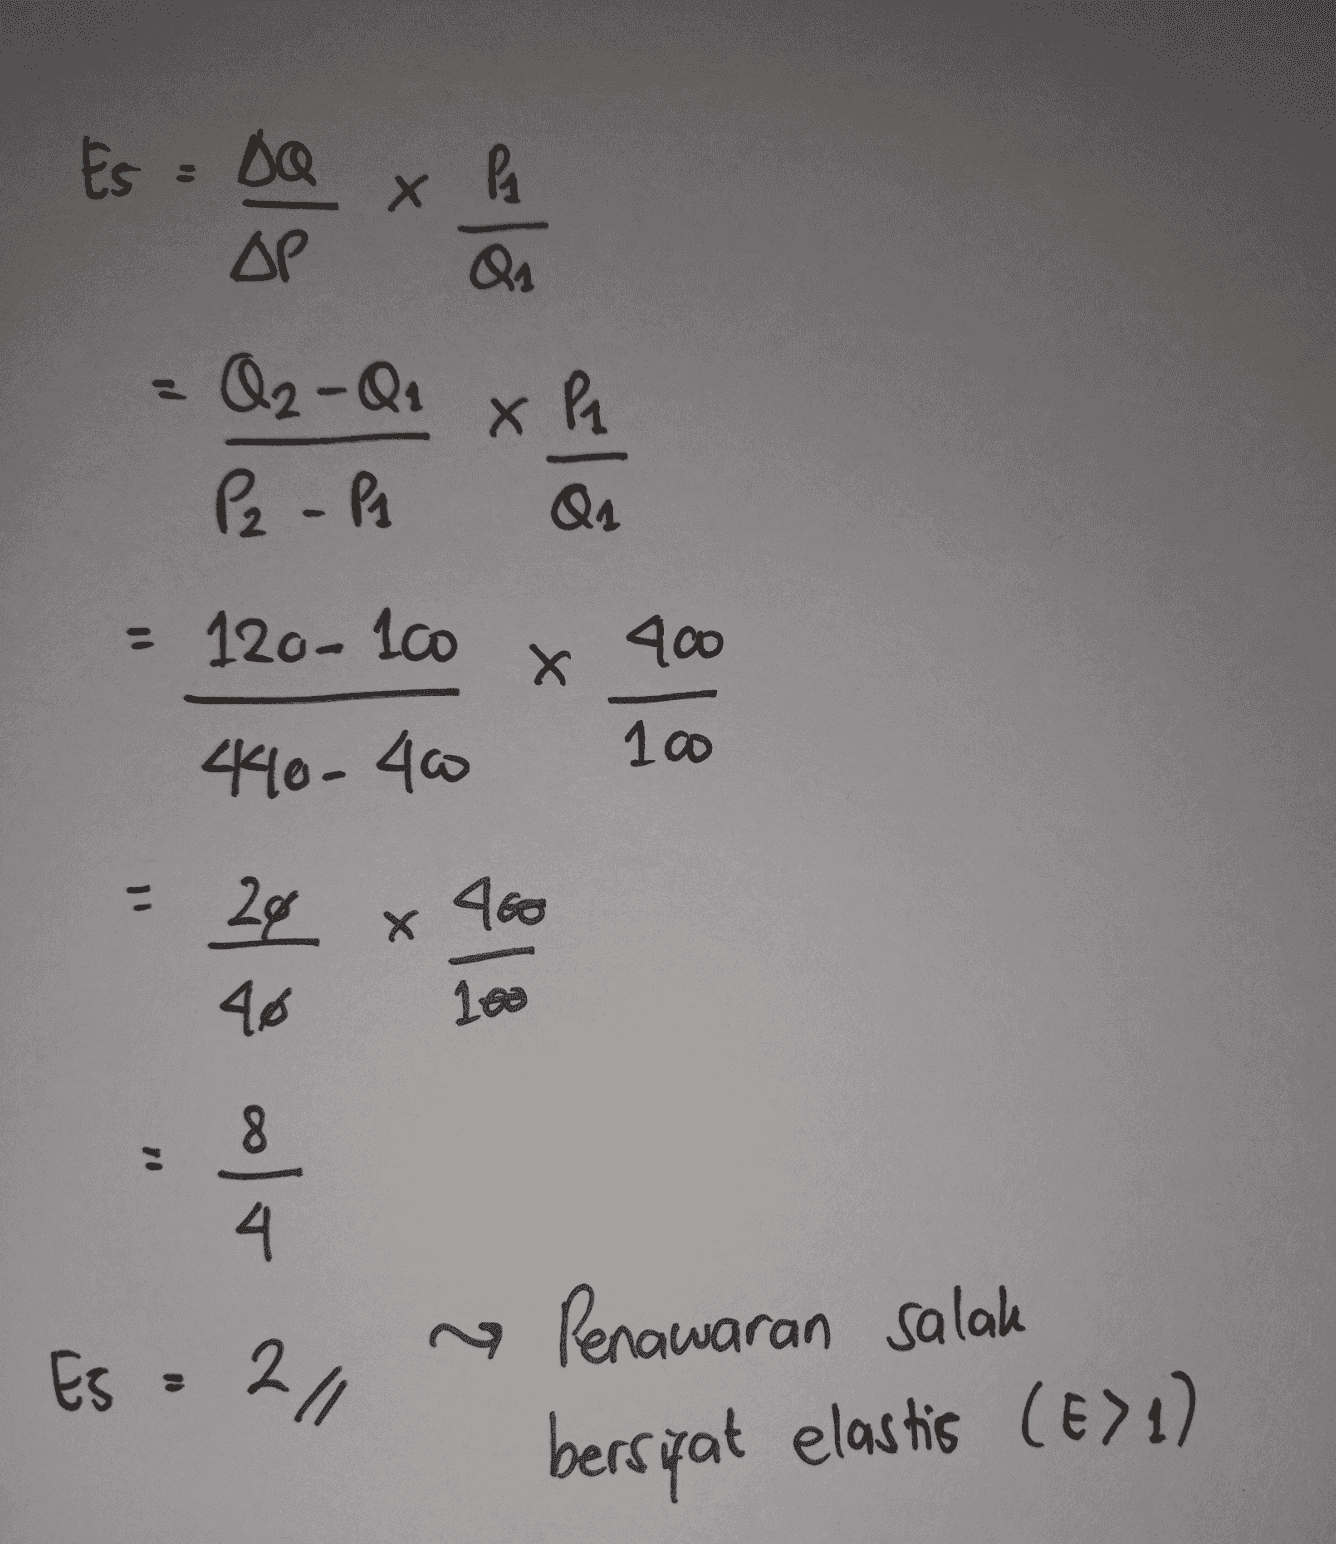 Es = ΔQ/ΔP x P1/Q1
= Q2 - Q1/P2 - P1 x P1/Q1
= 120 - 100/440 - 400 x 400/100
= 20/40 x 400/100
= 8/4
Es = 2 // ~> Penawaran salak
bersifat elastis (E>1)